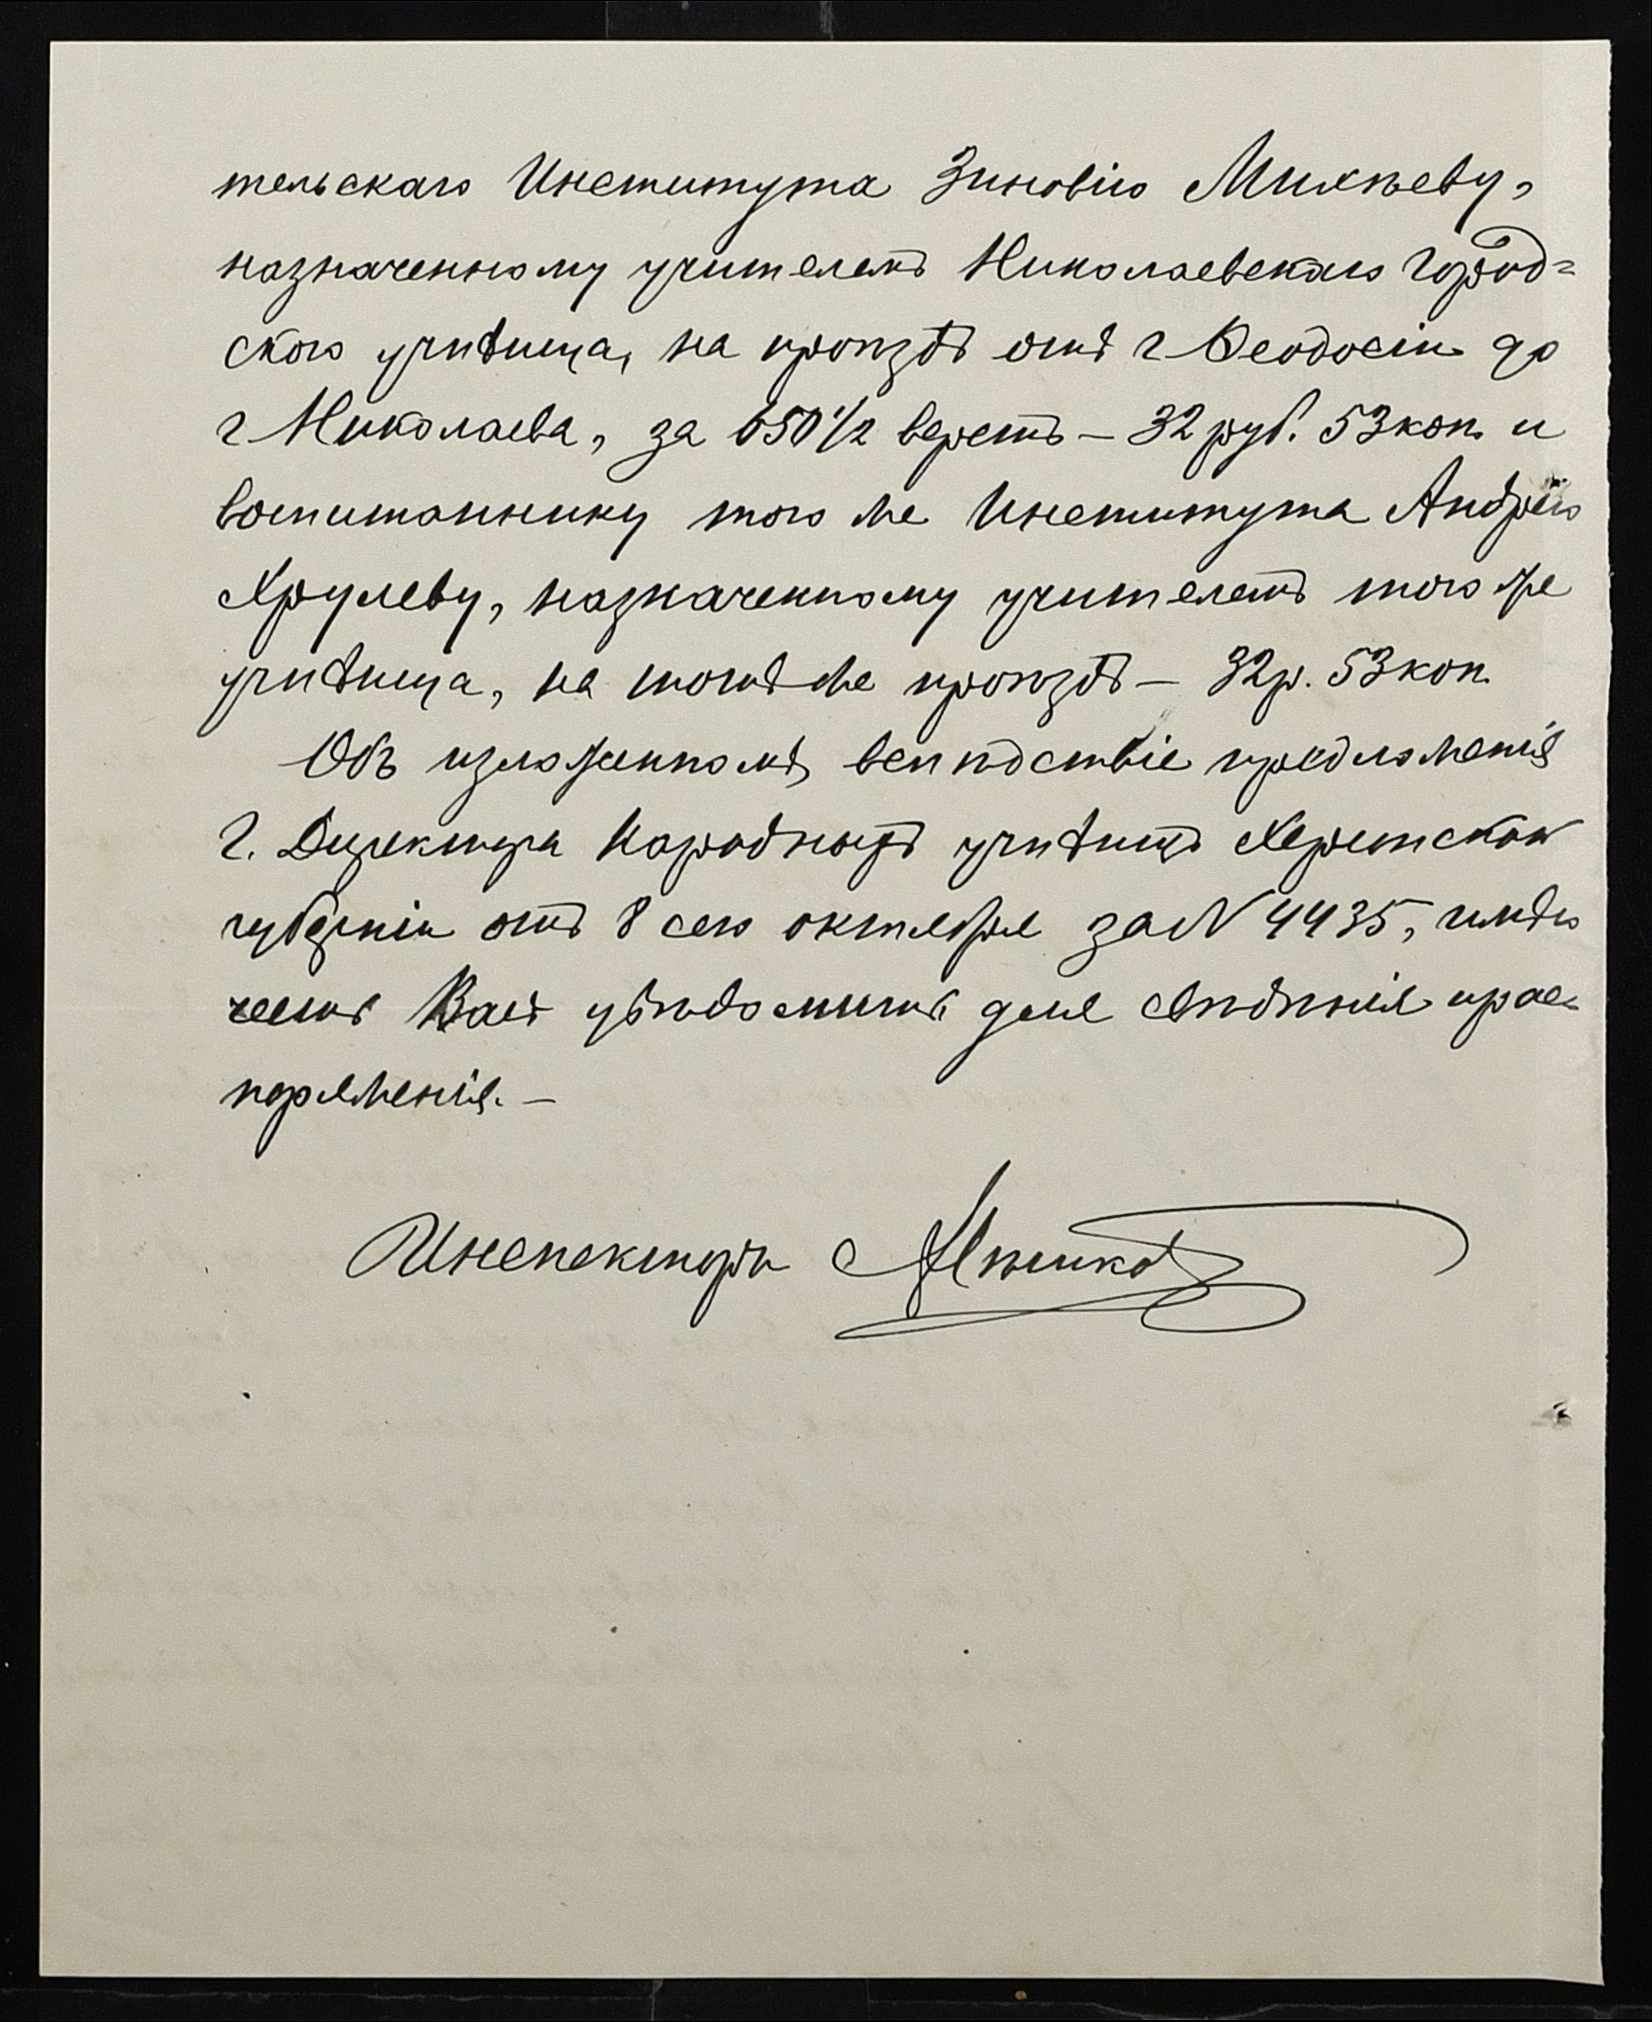 тельскаго Института Зиновію Михѣеву,
назначенному учителемъ Николаевскаго город-
ского училища, на проѣздъ отъ г Ѳеодосіи до
г Николаева, за 650 1/2 верстъ – 32 руб. 53 коп. и
воспитаннику того же Института Андрею
Хрулеву, назначенному учителемъ того же
училища, на тотъ же проѣздъ – 32 р. 53 коп.
Объ изложенномъ, вслѣдствіе предложенія
Г. Директора Народныхъ училищъ Херсонской
губерніи отъ 8 сего октября за N 4435, имѣю
честь Васъ увѣдомить для свѣдѣнія и рас-
поряженія. –
Инспекторъ